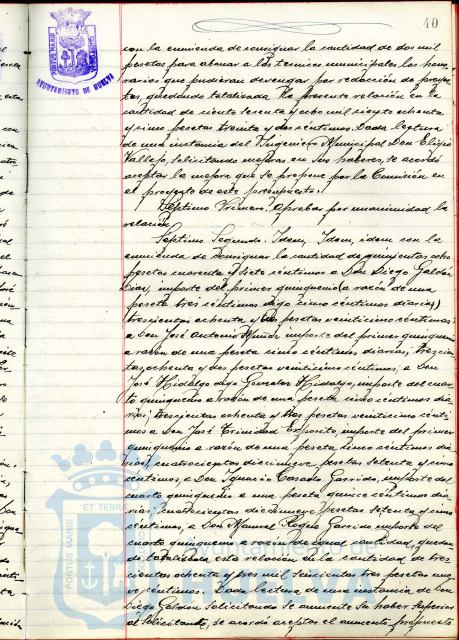 40
AYUNTAMIENTO DE HUELVA
con la enmienda de consignar la cantidad de dos mil
pesetas para abonar a los tecnicos municipales los hono
rarios que pudieran devengar por redacción de proyec
tos, quedando totalizada la presente relación en la
cantidad de ciento sesenta y ocho mil ciento ochenta
y cinco pesetas treinta y dos centimos. Dada lectura
de una instancia del Ingeniero Municipal Don Eligio
Vallejo, solicitando mejoras en sus haberes, se acordó
aceptar la mejora que se propone por la Comisión en
el proyecto de este presupuesto.
Septimo Primero. Aprobar por unanimidad la
relación
Septimo Segundo. Idem, Idem, idem con la
enmienda de consignar la cantidad de quinientas ocho
pesetas cuarenta y siete centimos a Don Diego Galdón
Diaz, importe del primer quinquenio (a razón de una
peseta tres centimos digo cinco centimos diarios)
trescientas ochenta y dos pesetas veinticinco centimos;
a Don José Antonio Muñoz importe del primer quinquenio
a razón de una peseta cinco centimos diarias, trescien
tas ochenta y dos pesetas veinticinco centimos; a Don
José Hidalgo digo Gonzalez Hidalgo, importe del cuar
to quinquenio a razón de una peseta cinco centimos dia
rias; trescientas ochenta y tres pesetas veinticinco cénti
mos a Don José Trinidad Exposito, importe del primer
quinquenio a razón de una peseta cinco centimos dia
rias, cuatrocientas diecinueve pesetas setenta y cinco
centimos, a Don Ignacio Casado Garrido, importe del
cuarto quinquenio a una peseta quince centimos dia
rias; cuatrocientas diecinueve pesetas setenta y cinco
centimos, a Don Manuel Garrido importe del
cuarto quinquenio a razón de igual cantidad, quedan
do totalizada esta relación en la cantidad de tres
cientas ochenta y tres mil seiscientas tres pesetas nue
ve centimos. Dada lectura de una instancia de Don
Diego Galdón solicitando se aumente su haber superior
al solicitante, se acordó aceptar el aumento propuesto
PORTUS MARIS ET TERRAE
Ayuntamiento de
HUELVA